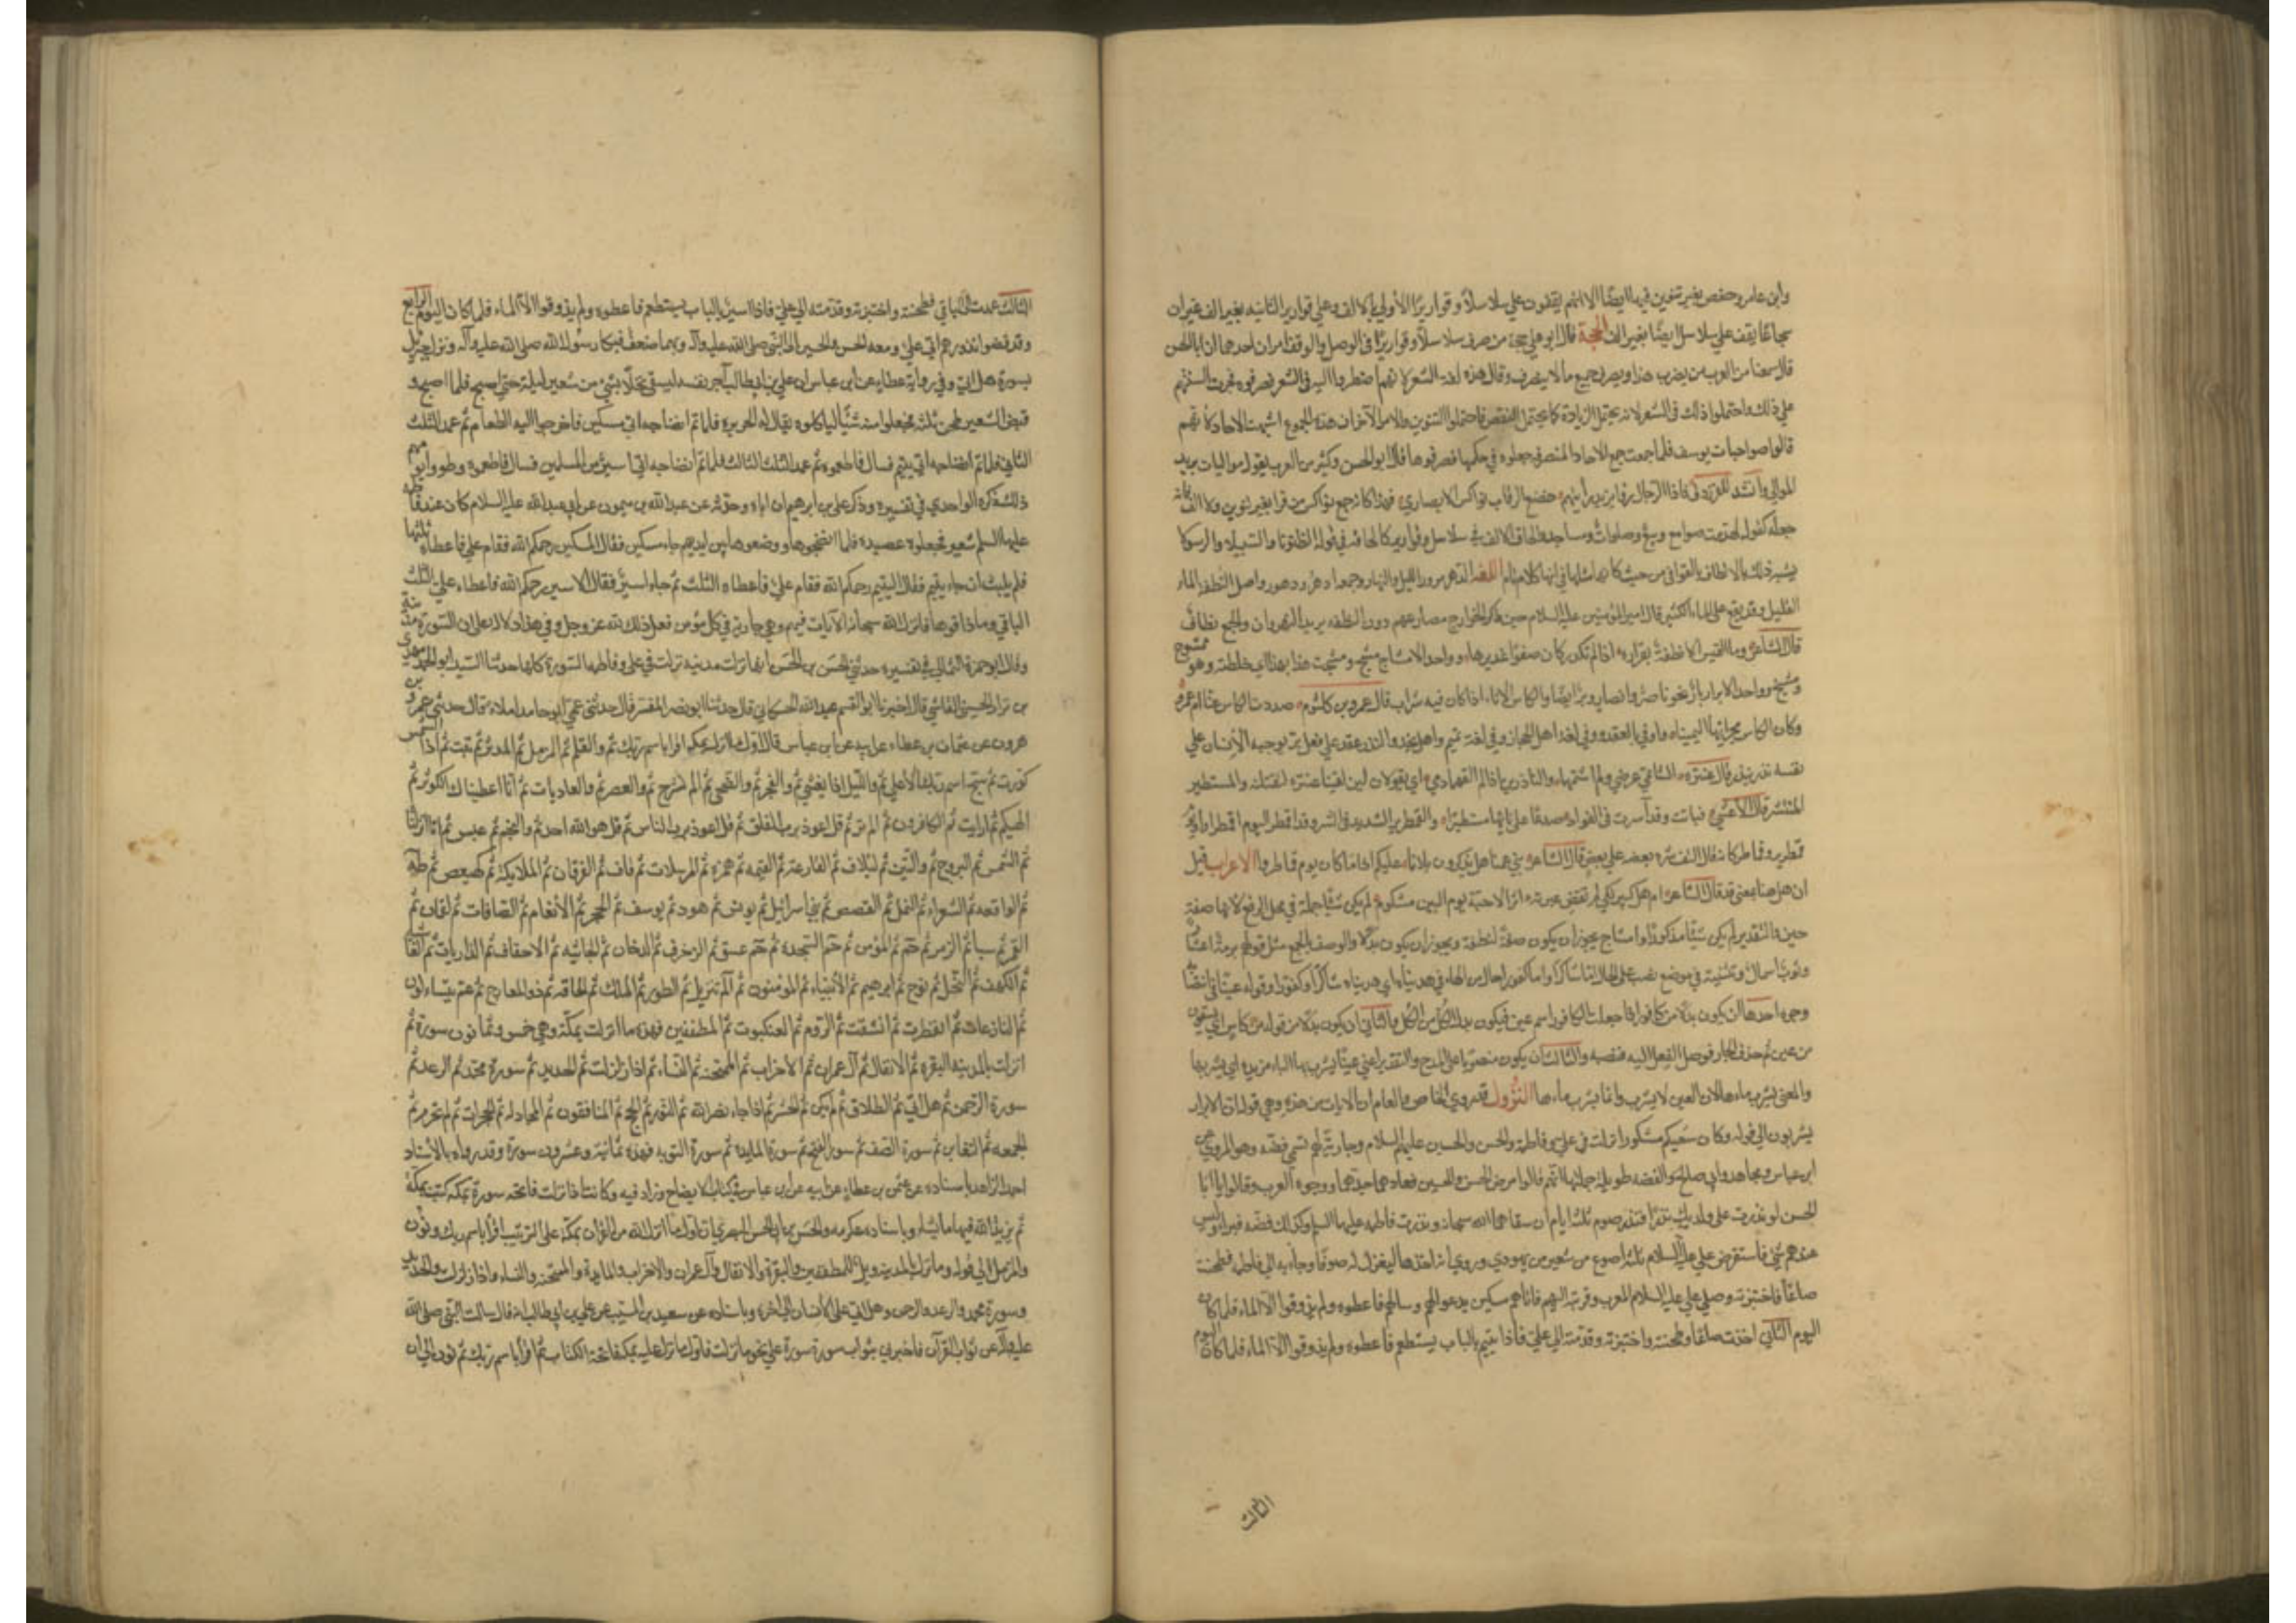 وابن عامر وحفص بغير تنوين فيها ايضا الا انهم يقفون علي سلاسلا وقواريرا الأولي بالالف وعلي قوارير الثانيه بغير الف غير ان
شجاعا يقف علي سلاسل ايضا بغير الف الحجة قال ابو علي حجة من صرف سلاسلا وقواريرا في الوصل والوقف امران احدهما ان ابا الحسن
قال سمعنا من العرب من يصرف هذا ويصرف جميع ما لا ينصرف وقال هذه لغة الشعر لانهم اضطروا اليه في الشعر فصرفوه فجرت السنتهم
علي ذلك واحتملوا ذلك في الشعر لانه يحتمل الزيادة كما يحتمل النقص فاحتملوا التنوين والامر الآخر ان هذه الجموع اشبهت الاحاد لانهم
قالوا صواحبات يوسف فلما جمعت جمع الاحاد المنصرفة جعلوه في حكمها فصرفوها قال ابو الحسن وكثير من العرب يقول مواليات يريد
الموالي وانشد للفرزدق فاذا الرجال رأوا يزيد رأيتهم خضع الرقاب نواكس الابصار فهذا كانه جمع نواكس من قرا بغير تنوين ولا الف فانه
جعله كقوله لهدمت صوامع وبيع وصلوات ومساجد والحاق الالف في سلاسل وقوارير كالحاقه في قوله الظنونا والسبيلا والرسولا
يشبه ذلك بالاطلاق في القوافي من حيث كانت امثلها في انها كلام تام اللغه الدهر مرور الليل والنهار وجمعه ادهر ودهور واصل النطفة الماء
القليل وقد يقع علي الماء الكثير قال امير المؤمنين عليه السلام حين ذكر الخوارج مصارعهم دون النطفه يريد النهروان والجمع نطاف
قال الشاعر وما النفس الا نطفة بقرارة اذا لم تكدر كان صفوا غديرها وواحد الامشاج مشج ومشجت هذا بهذا اي خلطته وهو ممشوج
ومشيج وواحد الابرار بار نحو ناصر وانصار وبر ايضا والكاس الاناء اذا كان فيه شراب قال عمرو بن كلثوم صددت الكاس عنا ام عمرو
وكان الكاس مجراها اليمينا واوفي بالعقد ووفي لغة اهل الحجاز وفي لغة تميم واهل نجد والنذر عقد علي فعل بر يوجبه الانسان علي
نفسه نذر ينذر قال عنترة الشاتمي عرضي ولم اشتمهما والناذرين اذا لم القهما دمي اي يقولان لئن لقينا عنترة لنقتلنه والمستطير
المنتشر قال الأعشي فبانت وقد اسرت في الفواد صدعا علي نايها مستطيرا والقمطرير الشديد في الشر وقد اقمطر اليوم اقمطرارا ويوم
قمطرير وقماطر كانه قد التف شره بعضه علي بعض قال الشاعر بني عمنا هل تذكرون بلاءنا عليكم اذا ما كان يوم قماطر الاعراب قيل
ان هل هنا بمعني قد قال الشاعر ام هل كبير بكي لم تقض عبرته اثر الاحبة يوم البين مشكوم لم يكن شيئا جملة في محل الرفع لانها صفة
حين والتقدير لم يكن شيئا مذكورا وامشاج يجوز ان يكون صفة لنطفة ويجوز ان يكون بدلا والوصف بالجمع مثل قولهم برمة اعشار
وثوب اسمال ونبتليه في موضع نصب علي الحال اما شاكرا واما كفورا حال من الهاء في هديناه اي هديناه شاكرا او كفورا وقوله عينا في انتصابه
وجوه احدها ان يكون بدلا من كافورا اذا جعلت الكافور اسم عين فيكون بدل الكل من الكل والثاني ان يكون بدلا من قوله من كاس اي يسقون
من عين ثم حذف الجار فوصل الفعل اليه فنصبه والثالث ان يكون منصوبا علي المدح والتقدير اعني عينا يشرب بها الباء مزيدة اي يشربها
والمعني يشرب ماءها لان العين لا يشرب وانما يشرب ماءها النزول قد روي الخاص والعام ان الايات من هذه وهي قوله ان الابرار
يشربون الي قوله وكان سعيكم مشكورا نزلت في علي وفاطمة والحسن والحسين عليهم السلام وجارية لهم تسمي فضه وهو المروي عن
ابن عباس ومجاهد وابي صالح والقصه طويلة جملتها انهم قالوا مرض الحسن والحسين فعادهما جدهما ووجوه العرب وقالوا يا ابا
الحسن لو نذرت علي ولديك نذرا فنذر صوم ثلثة ايام ان شفاهما الله سبحانه ونذرت فاطمه عليها السلم وكذلك فضه فبرءا وليس
عندهم شيء فاستقرض علي عليه السلام ثلثة اصوع من شعير من يهودي وروي انه اخذها ليغزل له صوفا وجاء به الي فاطمة فطحنت
صاعا فاختبزته وصلي علي عليه السلام المغرب وقربته اليهم فاتاهم مسكين يدعو لهم وسالهم فاعطوه ولم يذوقوا الا الماء فلما كان
اليوم الثاني اخذت صاعا وطحنته واختبزته وقدمته الي علي فاذا يتيم بالباب يستطعم فاعطوه ولم يذوقوا الا الماء فلما كان اليوم
الثالث
الثالث عمدت الي الباقي فطحنته واختبزته وقدمته الي علي فاذا اسير بالباب يستطعم فاعطوه ولم يذوقوا الا الماء فلما كان اليوم الرابع
وقد قضوا نذورهم اتي علي ومعه الحسن والحسين الي النبي صلي الله عليه وآله وبهما ضعف فبكا رسول الله صلي الله عليه وآله ونزل جبريل
بسورة هل اتي وفي رواية عطاء عن ابن عباس ان علي بن ابي طالب آجر نفسه ليسقي نخلا بشيء من شعير ليلة حتي اصبح فلما اصبح و
قبض الشعير طحن ثلثه فجعلوا منه شيئا لياكلوه يقال له الحريرة فلما تم انضاجه اتي مسكين فاخرجوا اليه الطعام ثم عمد الثلث
الثاني فلما تم انضاجه اتي يتيم فسال فاطعموه ثم عمد الثلث الثالث فلما تم انضاجه اتي اسير من المسلمين فسال فاطعموه وطووا يومهم
ذلك ذكره الواحدي في تفسيره وذكر علي بن ابراهيم ان اباه حدثه عن عبدالله بن ميمون عن ابي عبدالله عليه السلام كان عند فاطمة
عليها السلم شعير فجعلوه عصيدة فلما انضجوها ووضعوها بين ايديهم جاء مسكين فقال المسكين رحمكم الله فقام علي فاعطاه ثلثها
فلم يلبث ان جاء يتيم فقال اليتيم رحمكم الله فقام علي فاعطاه الثلث ثم جاء اسير فقال الاسير رحمكم الله فاعطاه علي الثلث
الباقي وما ذاقوها فانزل الله سبحانه الآيات فيهم وهي جارية في كل مؤمن فعل ذلك لله عز وجل وفي هذا دلالة علي ان السورة مدنية
وقال ابو حمزة الثمالي في تفسيره حدثني الحسن بن الحسن انها نزلت مدنية نزلت في علي وفاطمة السورة كلها حدثنا السيد ابو الحمد مهدي
بن نزار الحسيني القائني قال اخبرنا ابو القسم عبيد الله الحسكاني قال حدثنا ابو نصر المفسر قال حدثني عمي ابو حامد املاء قال حدثني عمرو بن
هرون عن عثمان بن عطاء عن ابيه عن ابن عباس قال اول ما انزل بمكة اقرا باسم ربك ثم والقلم ثم المزمل ثم المدثر ثم تبت ثم اذا الشمس
كورت ثم سبح اسم ربك الأعلي ثم والليل اذا يغشي ثم والفجر ثم والضحي ثم الم نشرح ثم والعصر ثم والعاديات ثم انا اعطيناك الكوثر ثم
الهيكم ثم ارايت ثم الكافرون ثم الم تر ثم قل اعوذ برب الفلق ثم قل اعوذ برب الناس ثم قل هو الله احد ثم والنجم ثم عبس ثم انا انزلنا
ثم الشمس ثم البروج ثم والتين ثم لئلاف ثم القارعة ثم القيمه ثم همزه ثم المرسلات ثم قاف ثم الفرقان ثم الملايكة ثم كهيعص ثم طه
ثم الواقعه ثم الشعراء ثم النمل ثم القصص ثم بني اسرائيل ثم يونس ثم هود ثم يوسف ثم الحجر ثم الأنعام ثم الصافات ثم لقمان ثم
القمر ثم سبا ثم الزمر ثم حم ثم المؤمن ثم حم السجده ثم حم عسق ثم الزخرف ثم الدخان ثم الجاثيه ثم الاحقاف ثم الذاريات ثم الغاشية
ثم الكهف ثم النحل ثم نوح ثم ابرهيم ثم الأنبياء ثم المؤمنون ثم الم تنزيل ثم الطور ثم الملك ثم الحاقه ثم ذو المعارج ثم عم يتساءلون
ثم النازعات ثم انفطرت ثم انشقت ثم الروم ثم العنكبوت ثم المطففين فهذه ما انزلت بمكة وهي خمس وثمانون سورة ثم
انزلت بالمدينه البقره ثم الانفال ثم آل عمران ثم الأحزاب ثم الممتحنه ثم النساء ثم اذا زلزلت ثم الحديد ثم سورة محمد ثم الرعد ثم
سورة الرحمن ثم هل اتي ثم الطلاق ثم لم يكن ثم الحشر ثم اذا جاء نصر الله ثم النور ثم الحج ثم المنافقون ثم المجادله ثم الحجرات ثم لم تحرم ثم
الجمعه ثم التغابن ثم سورة الصف ثم سورة الفتح ثم سورة المايدة ثم سورة التوبه فهذه ثمانية وعشرون سورة وقد رواه بالأستاد
احمد الزاهد باسناده عن عثمن بن عطاء عن ابيه عن ابن عباس في كتاب الايضاح وزاد فيه وكانت اذا نزلت فاتحة سورة بمكة كتبت بمكة
ثم يزيد الله فيها ما يشاء وباسناده عن عكرمه والحسن بن ابي الحسن البصري ان اول ما انزل الله من القرآن بمكة علي الترتيب اقرأ باسم ربك ونون
والمزمل الي قوله وما نزل بالمدينه ويل للمطففين والبقرة والانفال وآل عمران والاحزاب والمايدة والممتحنه والنساء واذا زلزلت والحديد
وسورة محمد والرعد والرحمن وهل اتي علي الانسان الي اخره وباسناده عن سعيد بن المسيب عن علي بن ابي طالب انه قال سالت النبي صلي الله
عليه وآله عن ثواب القرآن فاخبرني بثواب سورة سورة علي نحو ما نزلت فاول ما نزل عليه بمكة فاتحة الكتاب ثم اقرأ باسم ربك ثم نون الي ان